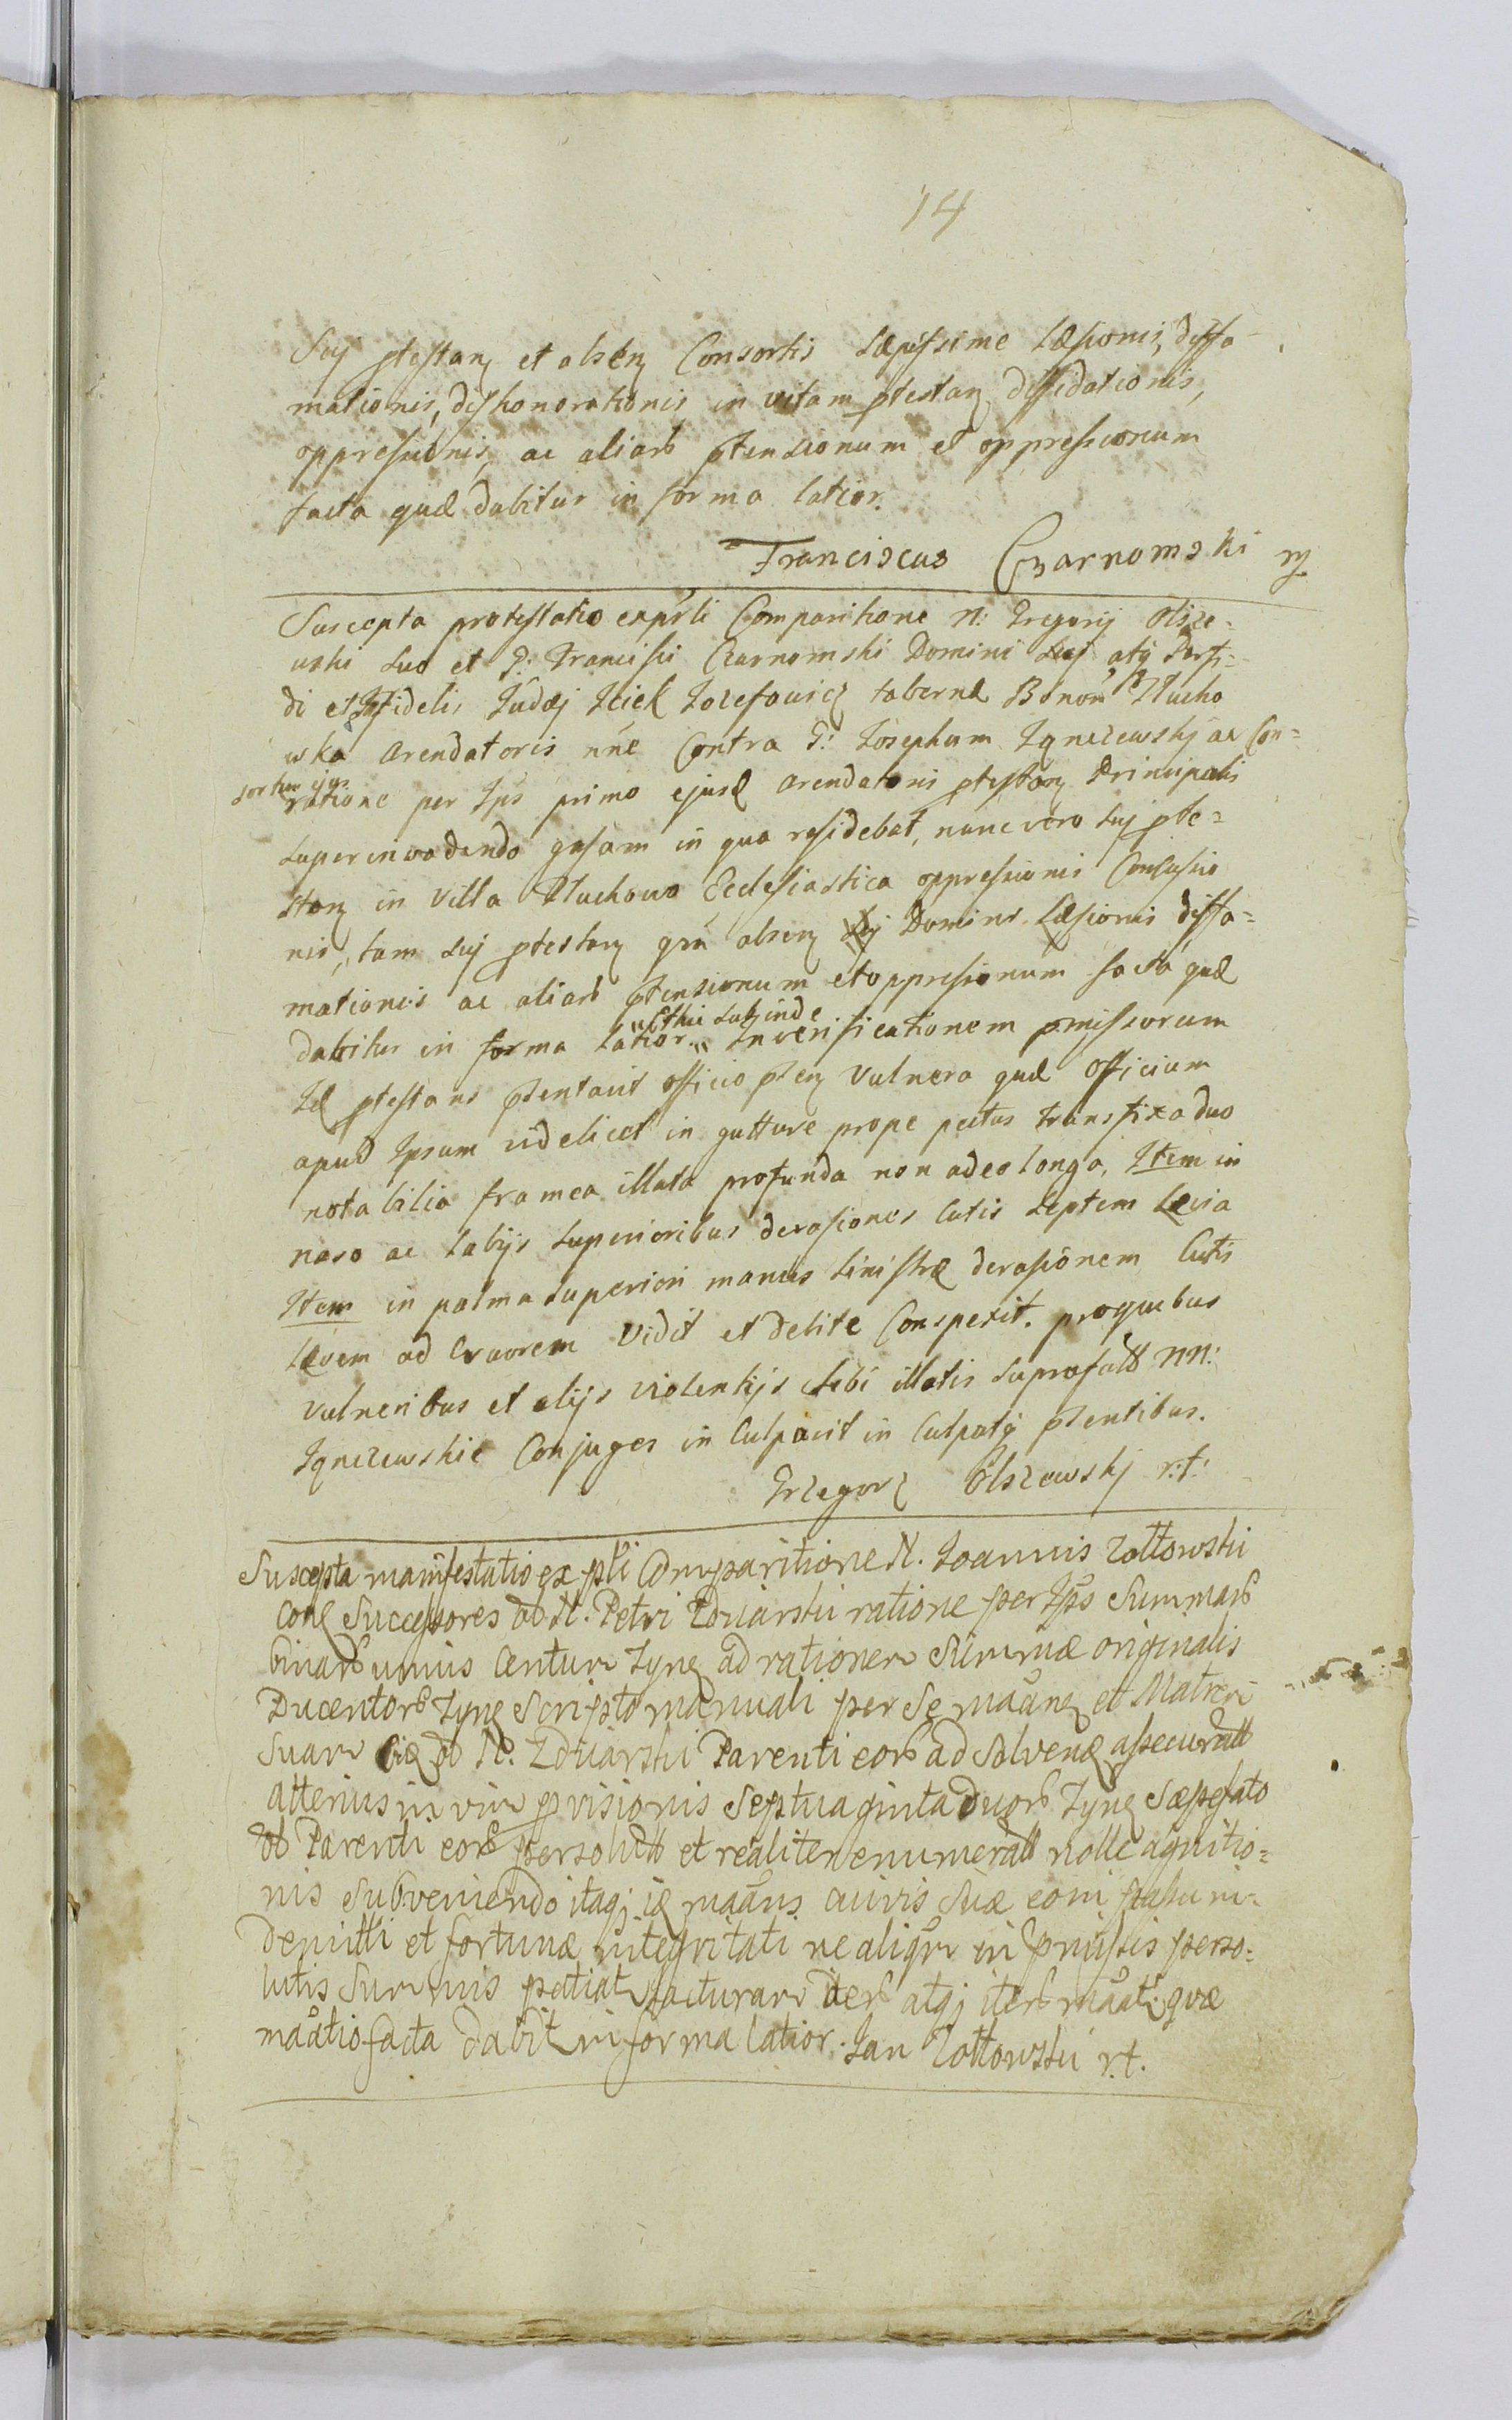 14
Suj ptestanʒ et absenʒ Consortis Sæpissime Læsionis, diffa-
mationis, dishonorationis in vitam ptestanʒ diffidationis,
oppressionis, ac aliarb ptensionum et oppressionum
facta quæ dabitur in forma latior.
Franciscus Czarnomski
Suscepta protestatio ex prsli Comparitione N: Gregorij Olsze=
wski Suo et G: Francisci Czarnomski Domini Suj atq Perfi=
di et Infidelis Judæj Iciek Jozefowicz tabernæ Bonorb Kłucho
wka Arendatoris nne Contra G: Josephum Ignczewskj ac Con=
sortem ejus
ratione per Ips primo ejusd arendatoris ptestanʒ Principalis
superinvadendo gasam in qua residebat, nunc vero Suj pte=
stanʒ in Villa Kłuchowo Ecclesiastica oppressionis Concussio
nis, tam Suj ptestanʒ qm absenʒ Domini Læsionis diffa=
mationis ac aliarb ptensionum et oppressionum facta quæ
dabitur in forma latior. "Et hic Subinde" In verificationem pmissorum
Id ptestans ptentavit officio ptenʒ Vulnera quæ Officium
apud Ipsum videlicet in gutture prope pectus transfixa duo
notabilia framea illata profunda non adeo longa, Item in
naso ac labijs Superioribus derasiones Cutis Septem Levia
Item in palma Superiori manus Sinistræ derasionem Cutis
Levem ad Cruorem Vidit et debite Conspexit. pro quibus
vulneribus et alijs violentijs sibi illatis Suprafatt NN:
Ignczewskie Conjuges in Culpavit in Culpatq ptentibus.
Grzegorz Olszewskj r:t:
Suscepta manifestatio ex ptli Comparitione N. Joannis Zołtowski
Conʒ Successores olb N. Petri Zdziarski ratione per Ips Summarb
binarb unius Centum Tynʒ ad rationem Summæ originalis
Ducentorb Tynʒ Scripto manuali per Se maanʒ et Matrem
Suam olb N. Zdziarski Parenti eorb ad Solvend assecuratt
alterius in vim pvisionis Septuaginta duorb Tynʒ Sæpefato
olb Parenti eorb persolutt et realiter enumeratt nolle agnitio=
nis Subveniendo itaq id maans
demitti et fortunæ integritati ne aliqm in pmissis perso=
lutis Summis patiat jacturam iterb atq iterb maat. quæ
maatio facta dabit in forma latior. Jan Zołtowski r.t.